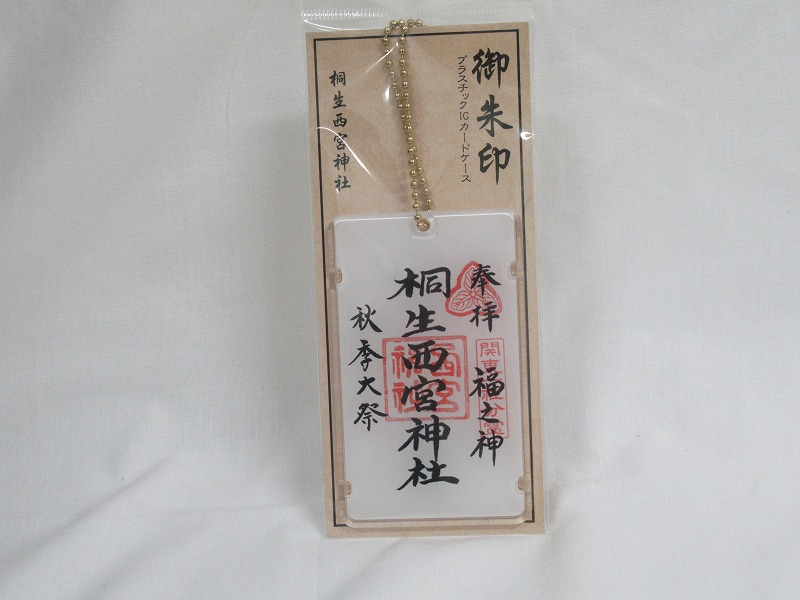 御朱印
プラスチックICカードケース
桐生西宮神社
奉拝 福之神
桐生西宮神社
秋季大祭
西宮
神社